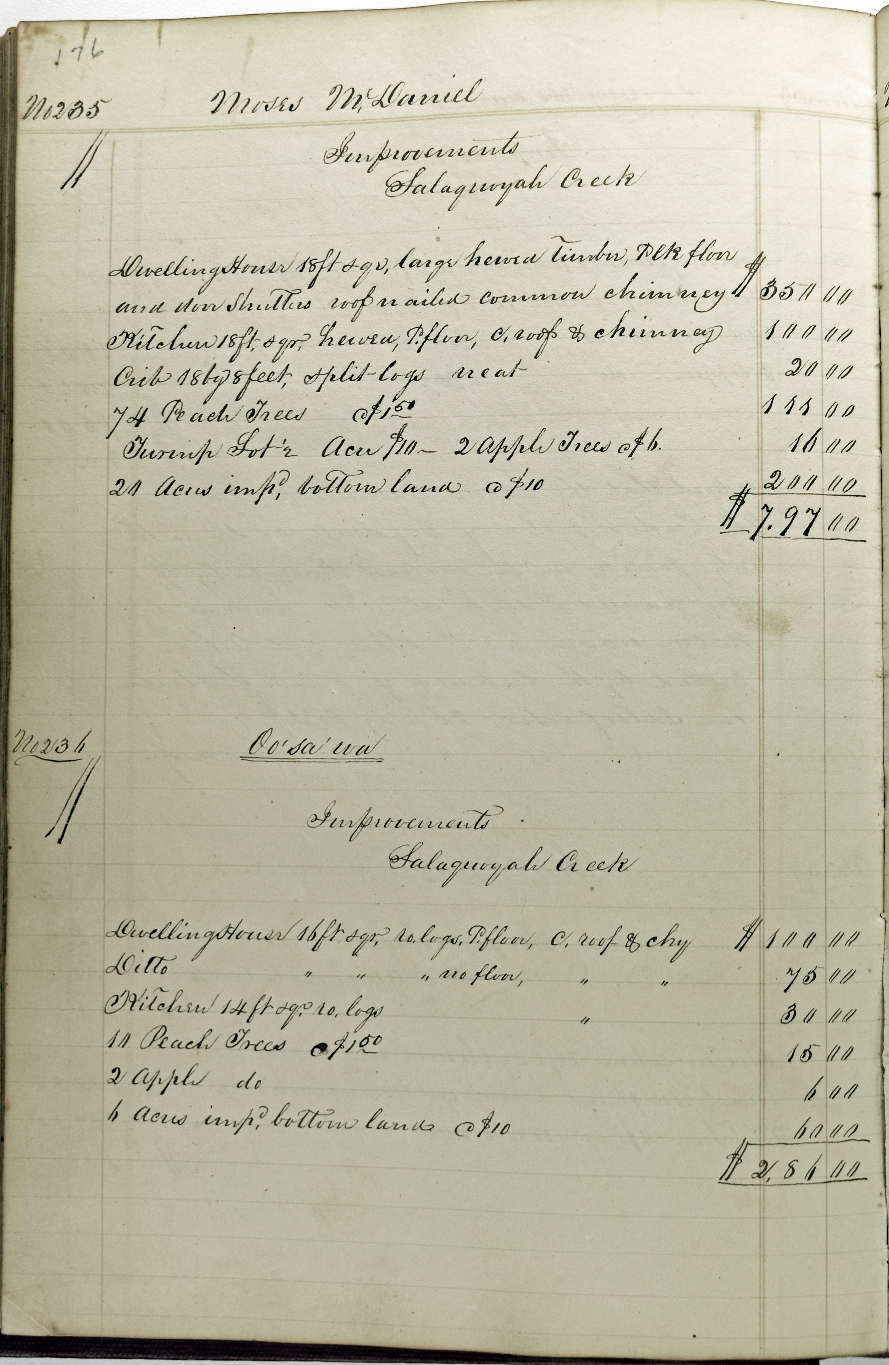 176
No 235 Moses McDaniel
Improvements
Salaquoyah Creek
Dwelling House 18ft sqr, large hewed Timber, Plk floor
and door Shutters roof nailed common chimney $ 350 00
Kitchen 18ft, sqr, hewed, P. floor, C. roof & chimney 100 00
Crib 18 by 8 feet, split logs neat 20 00
74 Peach Trees @ $1 50 111 00
Turnip Lot ½ Acre $10 — 2 Apple Trees @ $6. 16 00
20 Acres impd, bottom land @ $10 200 00
$ 7.97 00
No 236 Oo'sa'wa
Improvements
Salaquoyah Creek
Dwelling House 16ft sqr, ro. logs, P. floor, C. roof & chy $ 100 00
Ditto " " " no floor, " " 75 00
Kitchen 14 ft sqr ro, logs " 30 00
10 Peach Trees @ $1 50 15 00
2 Apple do 6 00
6 Acres impd, bottom land @ $10 60 00
$ 2,86 00